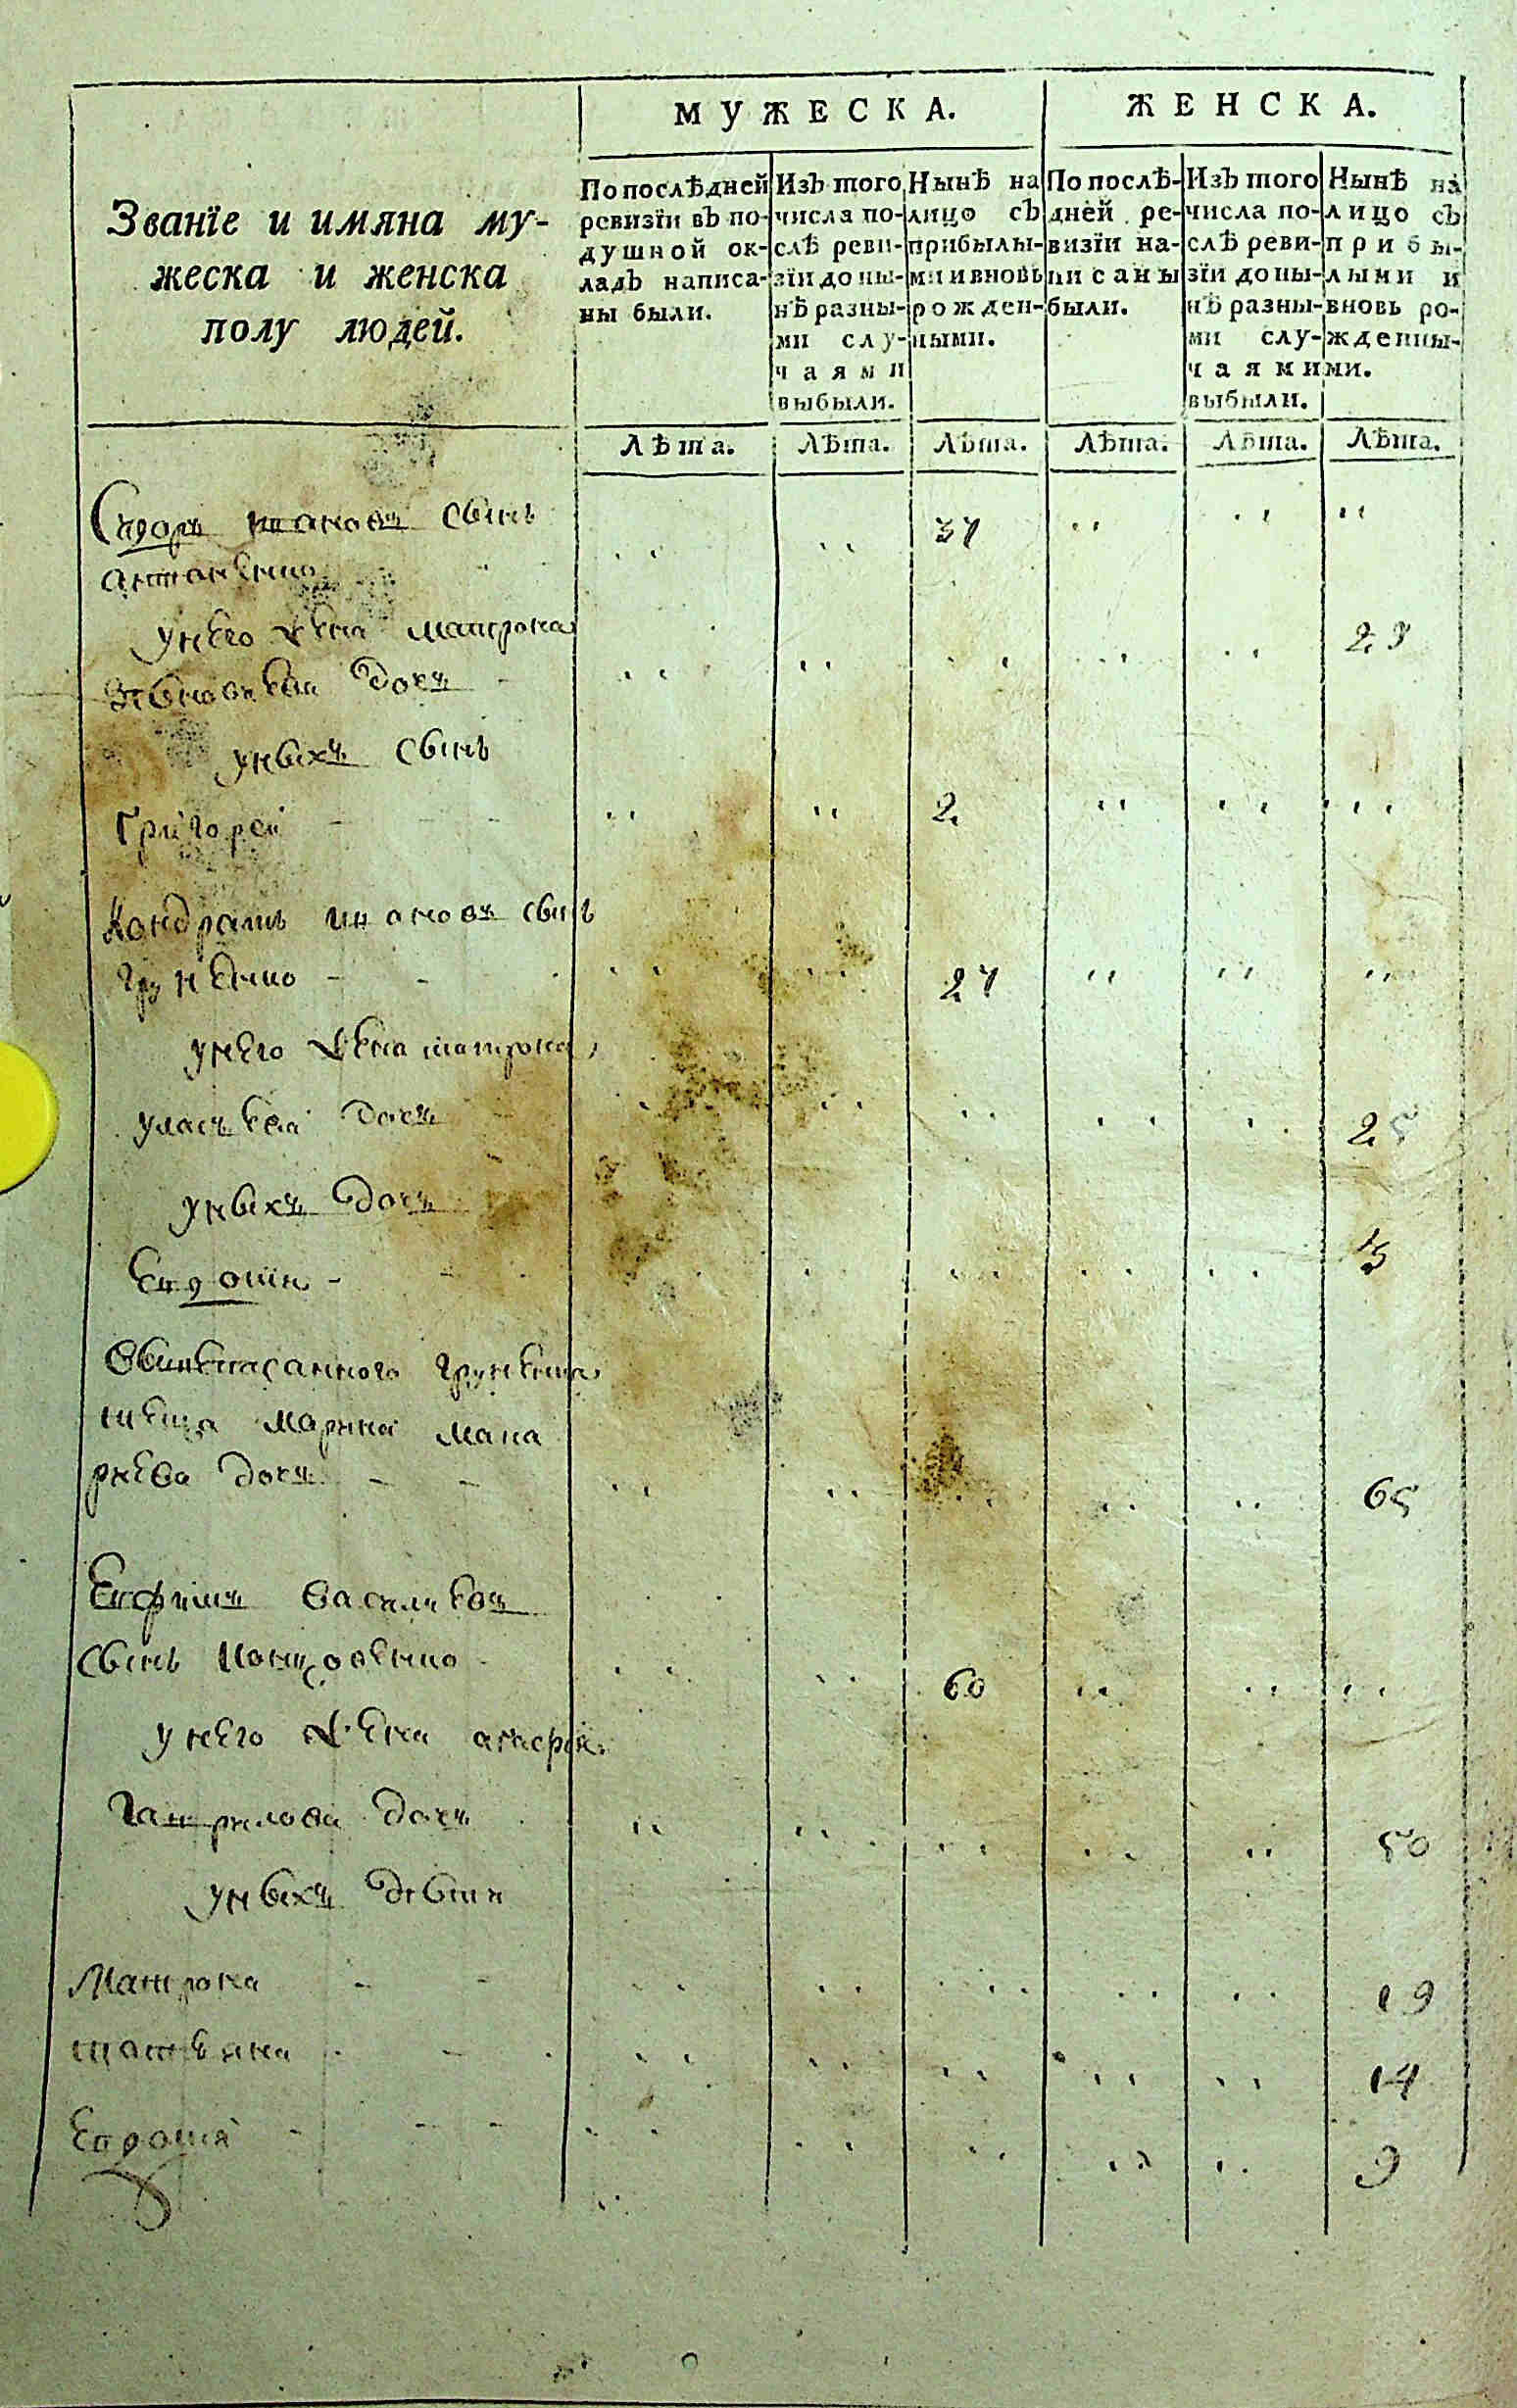 МУЖЕСКА.
ЖЕНСКА.
Званїе и имяна му-
жеска и женска
полу людей.
По послѣдней
ревизїи въ по-
душной ок-
ладъ написа-
ны были.
Изъ того
числа по-
слѣ реви-
зїи до ны-
нѣ разны-
ми слу-
чаями
выбыли.
Нынѣ на
лицо съ
прибылы-
ми и вновь
рожден-
ными.
По послѣ-
дней ре-
визїи на-
писаны
были.
Изъ того
числа по-
слѣ реви-
зїи до ны-
нѣ разны-
ми слу-
чаями
выбыли.
Нынѣ на
лицо съ
прибы-
лыми и
вновь ро-
жденны-
ми.
Лѣта. Лѣта. Лѣта. Лѣта. Лѣта. Лѣта.
Сидоръ сынъ 37
антоненко
унего жена матрона 23
дочь
унихъ сынъ
Григорей 2
Кондратъ ивановъ сынъ
груненко 27
унего жена матрона
уласьева дочь 25
унихъ дочь
Евдокия
груненка
марина мака
риева дочь 65
Ефимъ васильевъ
сынъ 60
унего жена
гаврилова дочь 50
унихъ дети
Матрона 19
татьяна 14
9